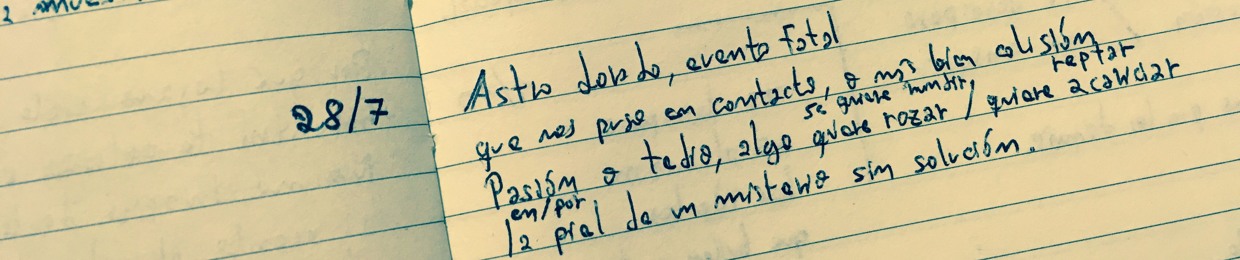 28/7
Astro dorado, evento fatal
que nos puso en contacto, o más bien colisión
se quiere hundir, reptar
Pasión o tedio, algo quiere rozar / quiere acariciar
en/por
la piel de un misterio sin solución.